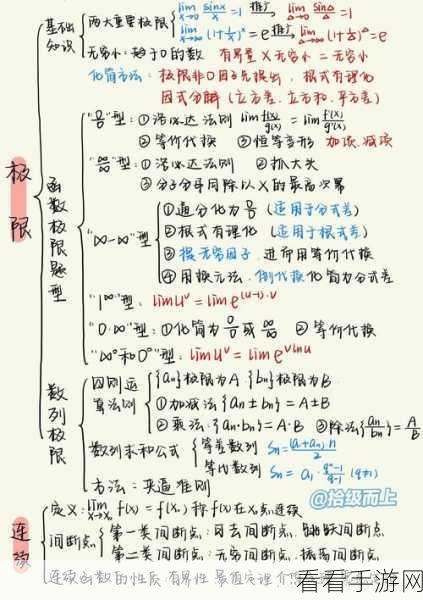 极限
基础知识
两大重要极限
lim x→0 sinx/x = 1 推广 lim Δ→0 sinΔ/Δ = 1
lim x→∞ (1+1/x)^x = e 推广 lim Δ→∞ (1+1/Δ)^Δ = e
无穷小：趋于0的数 有界量×无穷小=无穷小
化简方法：极限非0因子先提出，根式有理化
因式分解（立方差、立方和、平方差）
函数极限题型
"0/0"型：①洛必达法则 lim f(x)/g(x) = lim f'(x)/g'(x)
②等价代换 ③恒等变形 加项.减项
"∞/∞"型：①洛必达法则 ②抓大头
③分子分母同除以x的最高次幂
"∞-∞"型
①通分化为0/0（适用于分式差）
②根式有理化（适用于根式差）
③提无穷因子，进而用等价代换
④用换元法、倒代换化简为分式差
"1^∞"型：lim u^v = lim e^(u-1)·v
"0·∞"型：①化简为0/0或∞/∞ ②等价代换
"∞^0和0^0"型：lim u^v = lim e^vlnu
数列极限
四则运算法则
{an}极限为A {bn}极限为B
①加减法{an±bn}=A±B
②乘法：{an·bn}=A·B ③除法{an/bn}=A/B
数列求和公式
等差数列 Sn=(a1+an)n/2
等比数列 Sn=a1·(q^n-1)/(q-1) (q≠1)
方法：夹逼准则
@拾级而上
连续
定义：lim x→x0 f(x)=f(x0)称f(x)在x0点连续
间断点
第一类间断点：可去间断点、跳跃间断点
第二类间断点：无穷间断点、振荡间断点
连续函数的性质：有界性 最值定理 介
看看手游网